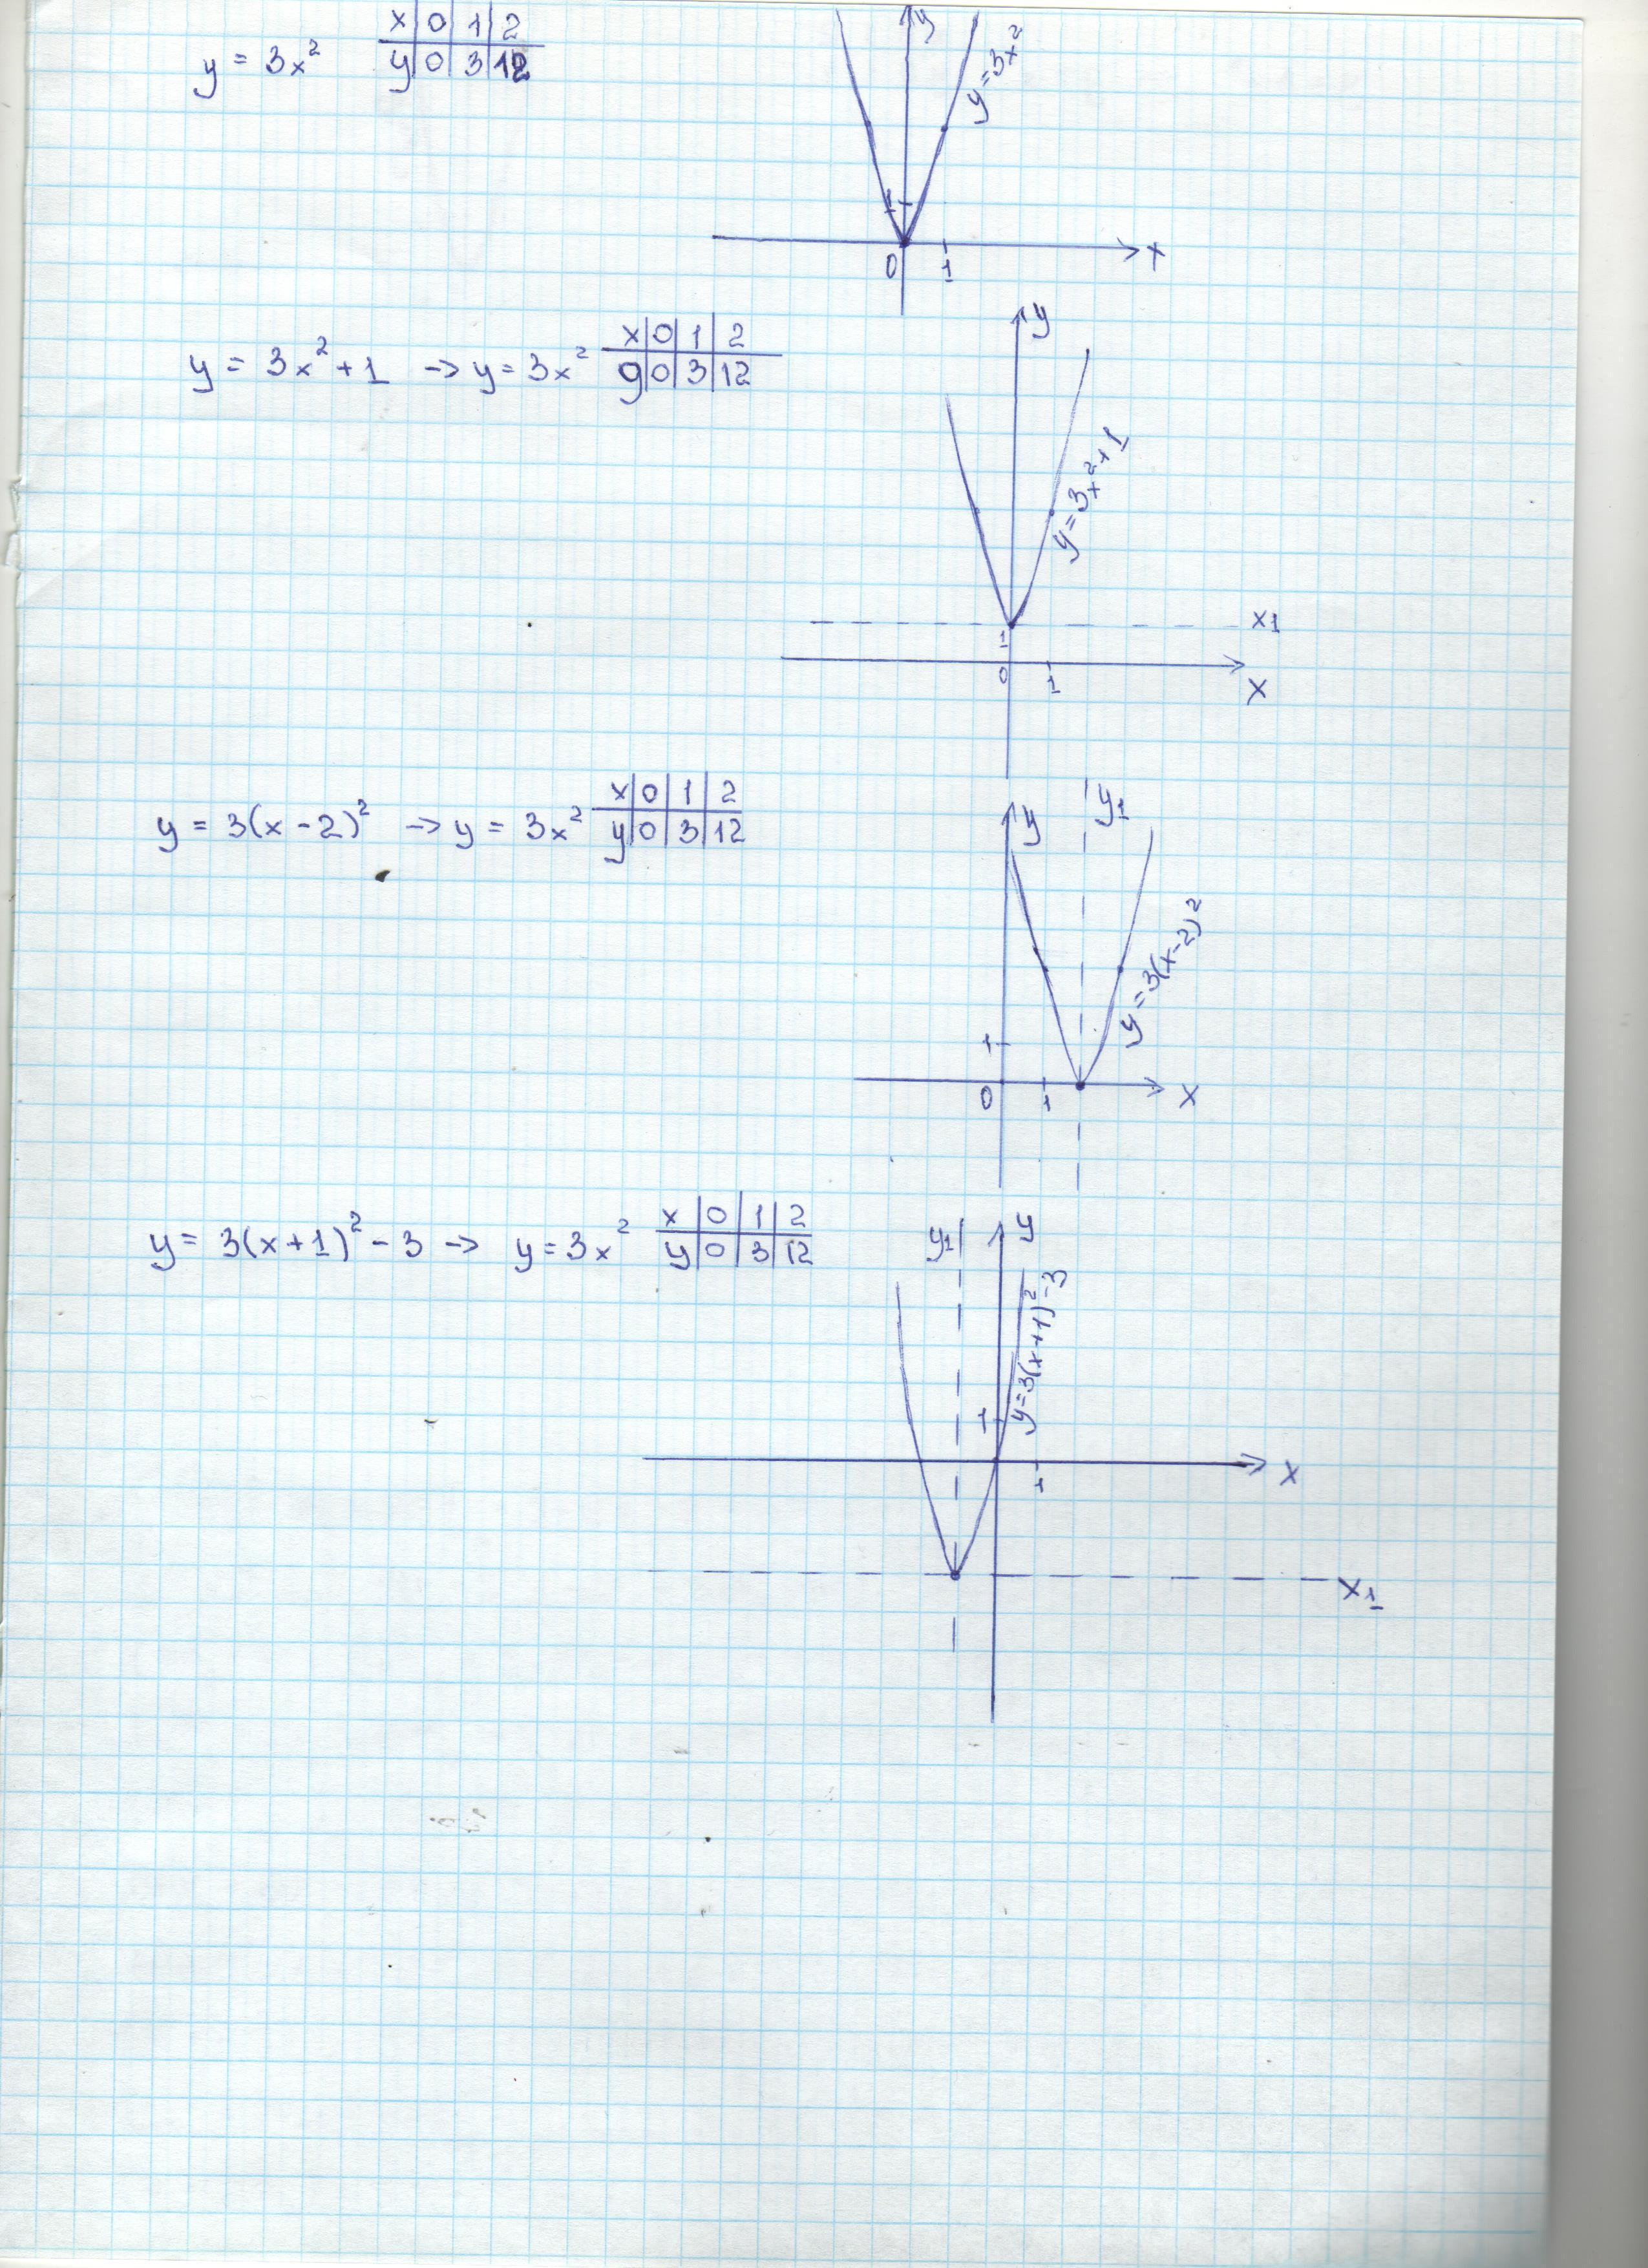 y = 3x²
x 0 1 2
y 0 3 12
y
y=3x²
0 1 x
y = 3x²+1 → y = 3x²
x 0 1 2
y 0 3 12
y
y=3x²+1
x1
1
0 1
x
y = 3(x-2)² → y = 3x²
x 0 1 2
y 0 3 12
y y1
y=3(x-2)²
1
0 1 x
y = 3(x+1)² - 3 → y = 3x²
x 0 1 2
y 0 3 12
y1 y
y=3(x+1)²-3
1
1 x
x1